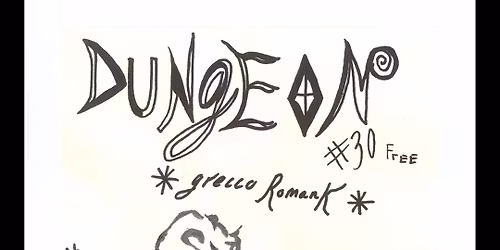 DUNgEON
#30 FREE
* grecco RomanK *